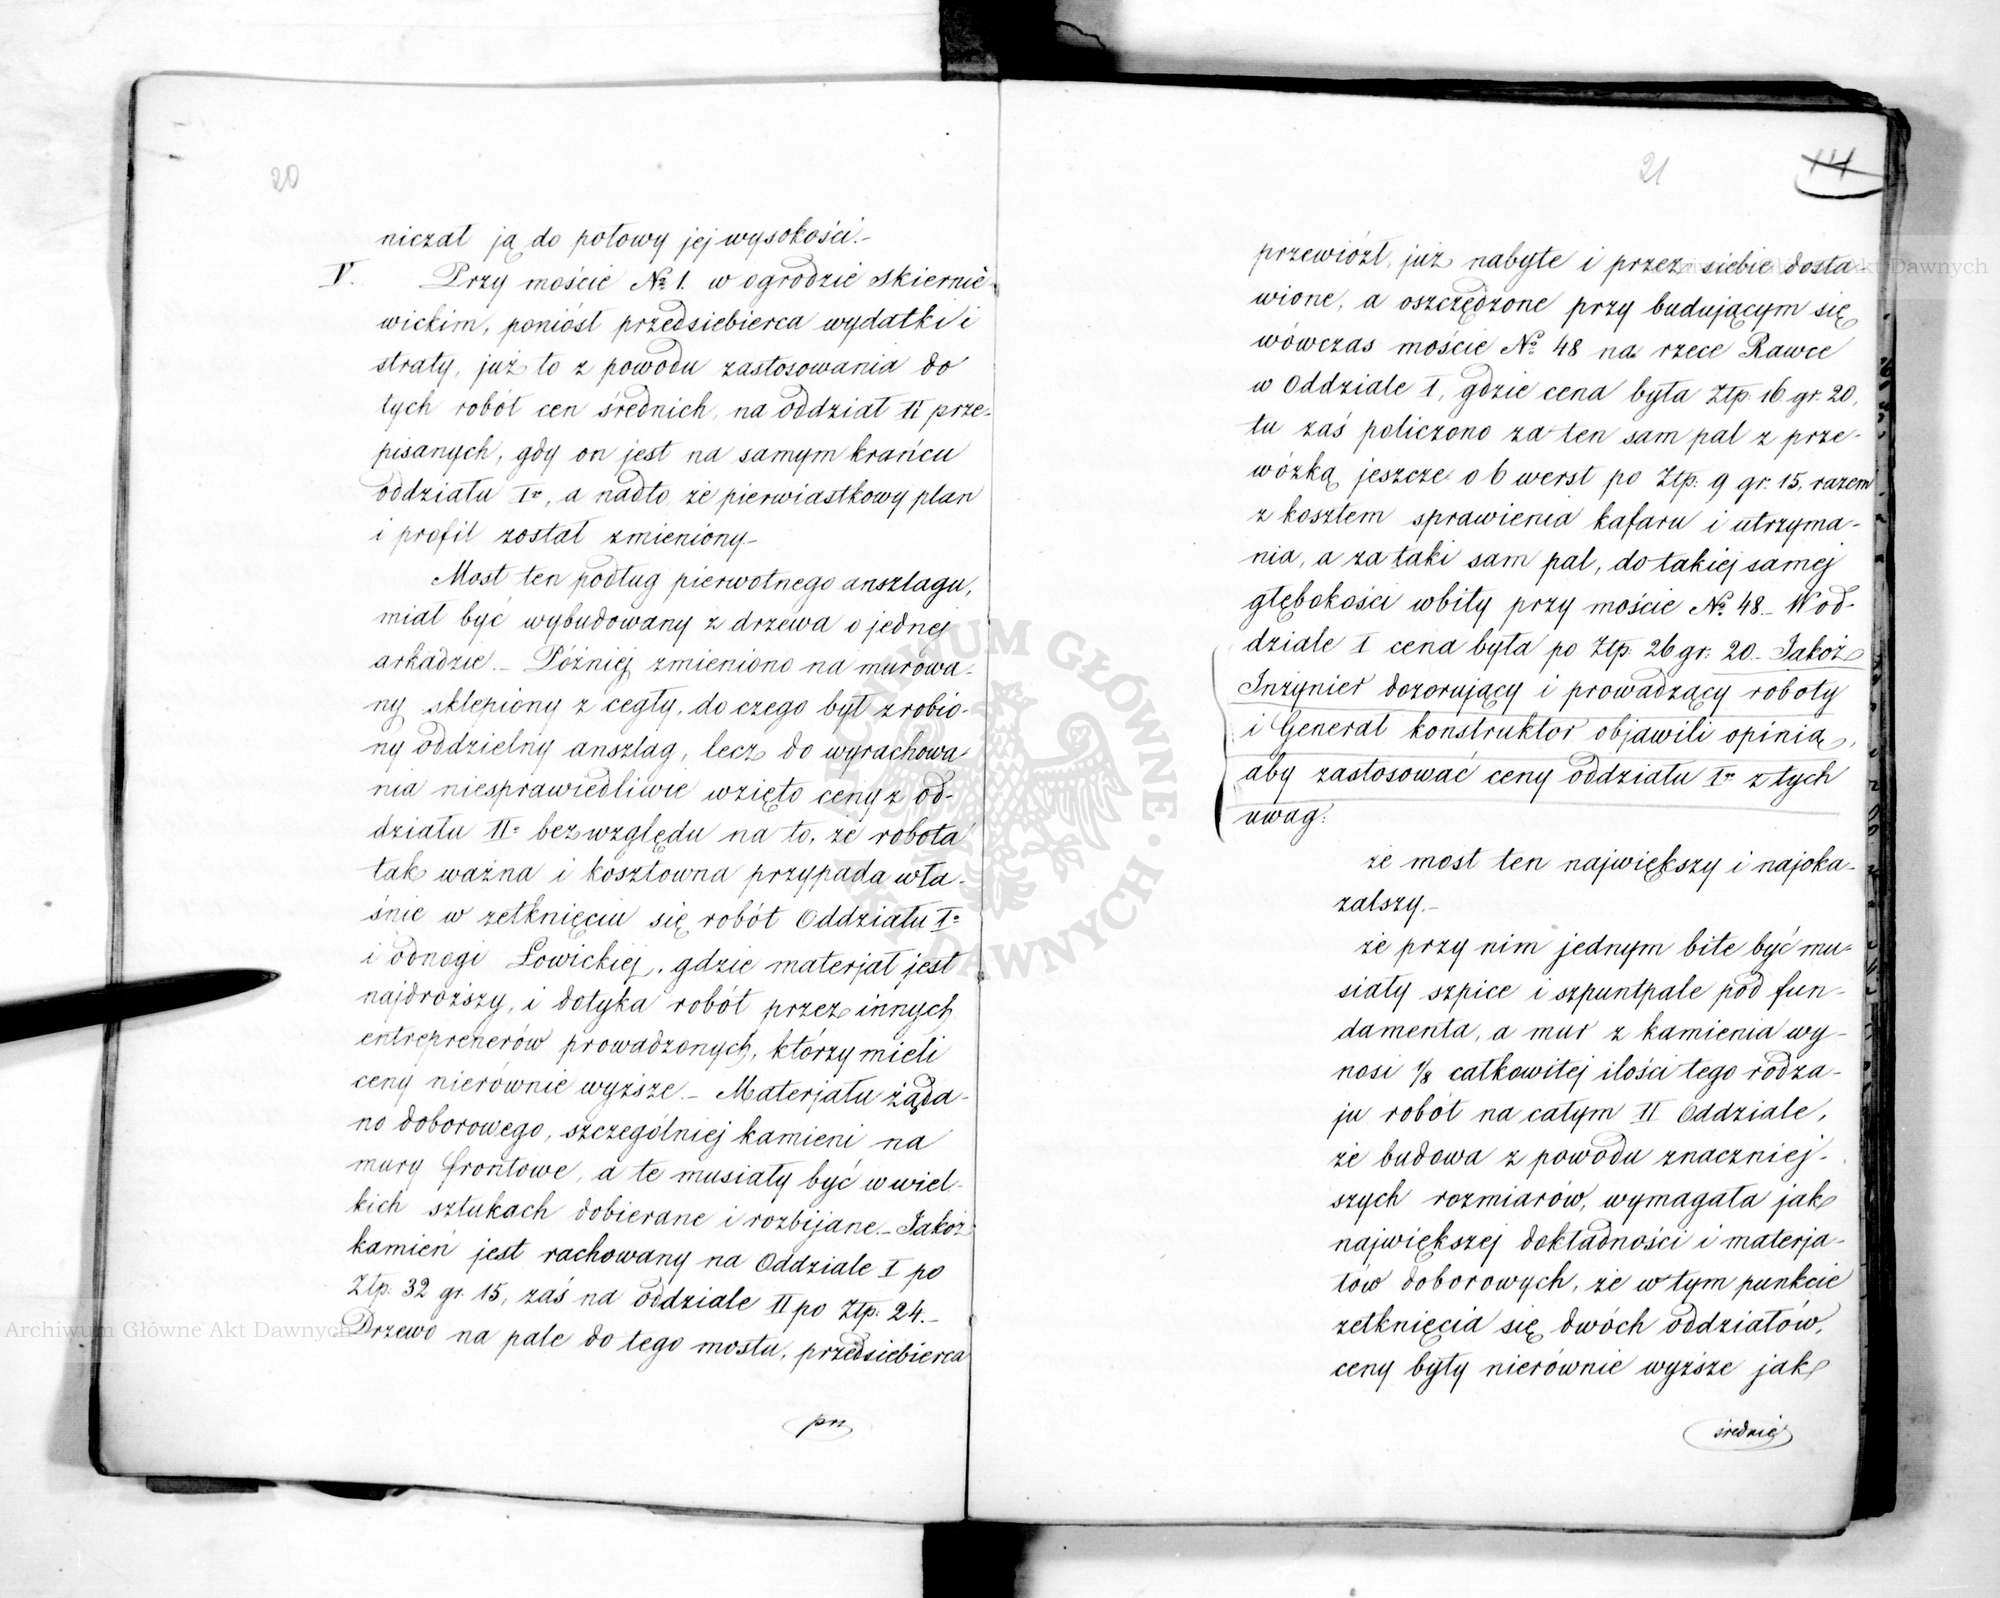 20
niczał ją do połowy jej wysokości.-
V. Przy moście № 1. w ogrodzie Skiernie-
wickim, poniósł przedsiebierca wydatki i
straty, już to z powodu zastosowania do
tych robót cen średnich, na oddział II prze-
pisanych, gdy on jest na samym krańcu
oddziału I⁰, a nadto że pierwiastkowy plan
i profil został zmieniony-
Most ten podług pierwotnego anszlagu,
miał być wybudowany z drzewa o jednej
arkadzie.- Później zmieniono na murowa-
ny sklepiony z cegły, do czego był zrobio-
ny oddzielny anszlag, lecz do wyrachowa-
nia niesprawiedliwie wzięto ceny z od-
działu II⁰ bez względu na to, że robota
tak ważna i kosztowna przypada wła-
śnie w zetknięciu się robót Oddziału I⁰
i odnogi Łowickiej, gdzie materjał jest
najdroższy, i dotyka robót przez innych
entreprenerów prowadzonych, którzy mieli
ceny nierównie wyższe.- Materjału żąda-
no doborowego, szczególniej kamieni na
mury frontowe, a te musiały być w wiel-
kich sztukach dobierane i rozbijane.- Jakoż
kamień jest rachowany na Oddziale I po
Złp. 32 gr. 15, zaś na oddziale II po Złp. 24.-
Drzewo na pale do tego mostu, przedsiebierca
prz
21
przewiózł, już nabyte i przez siebie dosta-
wione, a oszczędzone przy budującym się
wówczas moście № 48 na rzece Rawce
w Oddziale I, gdzie cena była Złp. 16 gr. 20,
tu zaś policzono za ten sam pal z prze-
wózką jeszcze o 6 werst po Złp. 9 gr. 15, razem
z kosztem sprawienia kafaru i utrzyma-
nia, a za taki sam pal, do takiej samej
głębokości wbity przy moście № 48.- W od-
dziale I cena była po Złp. 26 gr. 20.- Jakoż
Inżynier dozorujący i prowadzący roboty
i Generał konstruktor objawili opinią,
aby zastosować ceny oddziału I⁰ z tych
uwag:
że most ten największy i najoka-
zalszy.-
że przy nim jednym bite być mu-
siały szpice i szpuntpale pod fun-
damenta, a mur z kamienia wy-
nosi 1/8 całkowitej ilości tego rodza-
ju robót na całym II Oddziale,
że budowa z powodu znaczniej-
szych rozmiarów, wymagała jak
największej dokładności i materja-
łów doborowych, że w tym punkcie
zetknięcia się dwóch oddziałów,
ceny były nierównie wyższe jak
średnie
Archiwum Główne Akt Dawnych
ARCHIWUM GŁÓWNE AKT DAWNYCH
Archiwum Główne Akt Dawnych